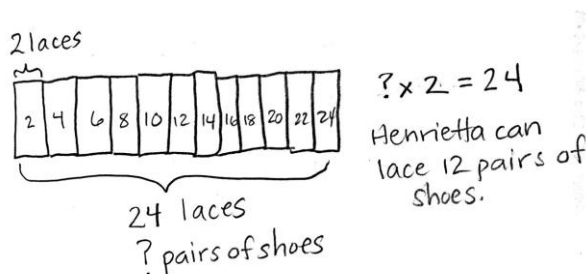 2 laces
2 4 6 8 10 12 14 16 18 20 22 24
24 laces
? pairs of shoes
? x 2 = 24
Henrietta can
lace 12 pairs of
shoes.